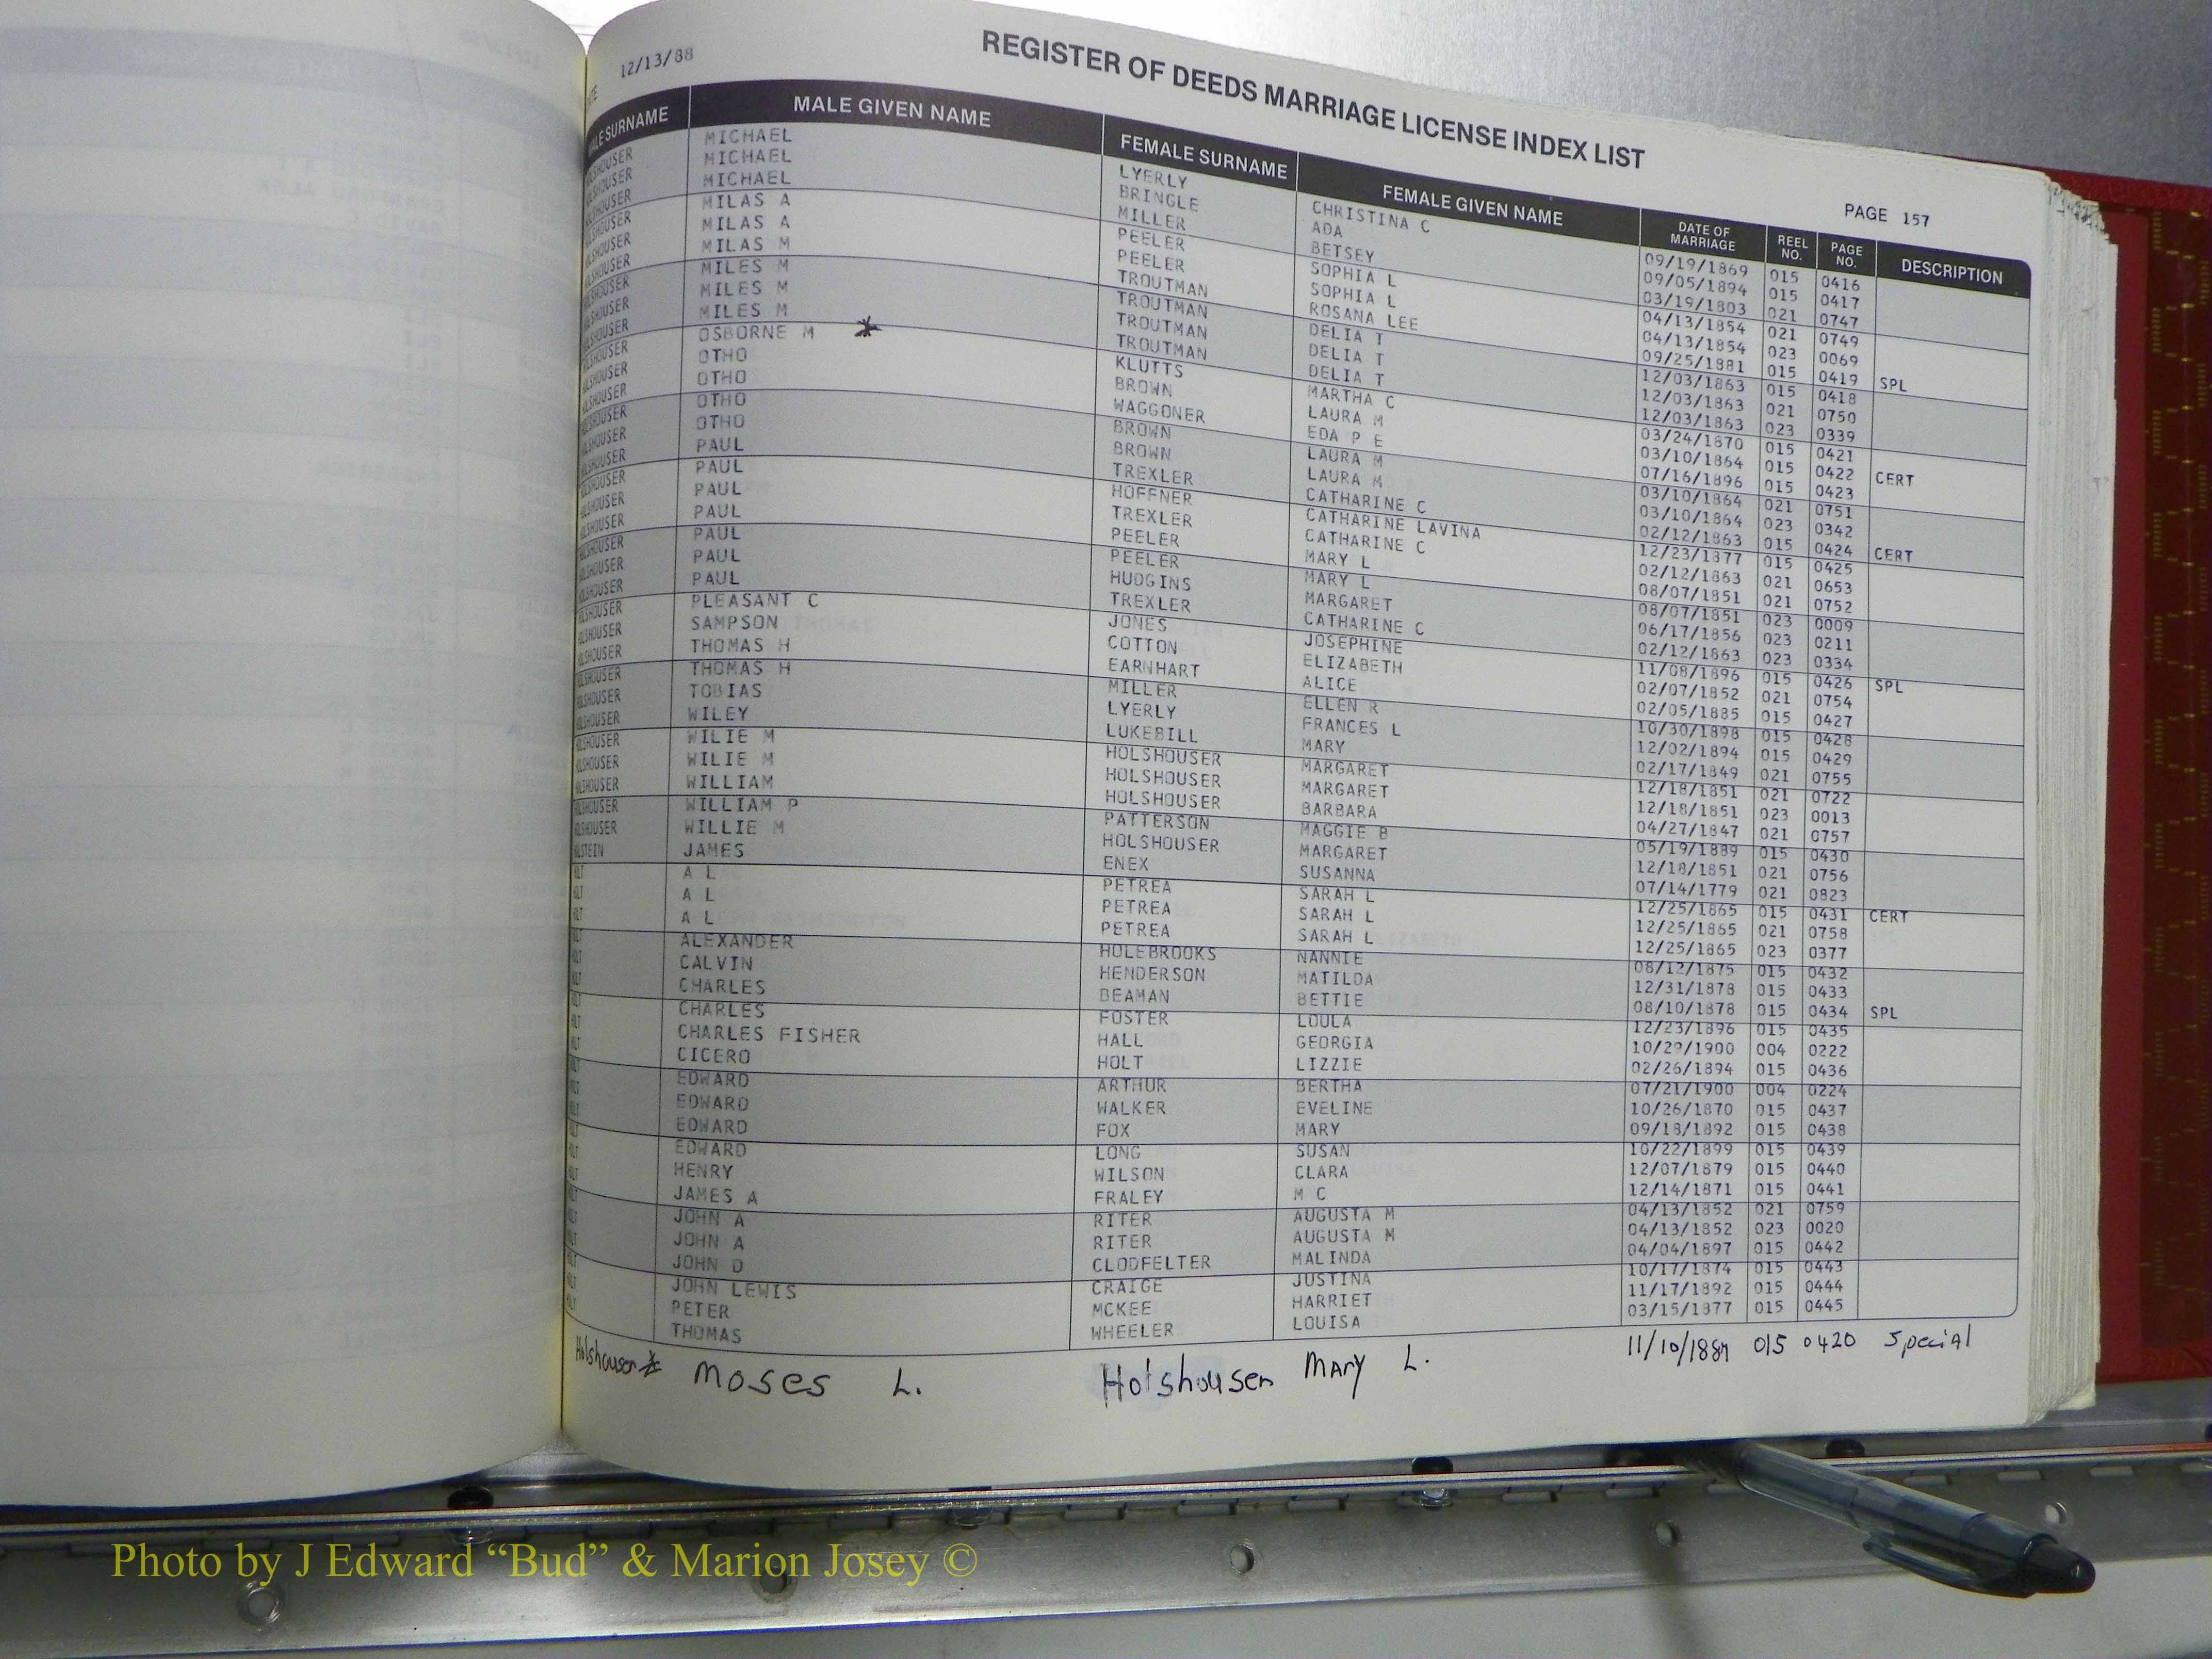 12/13/88
REGISTER OF DEEDS MARRIAGE LICENSE INDEX LIST
PAGE 157
MALE SURNAME MALE GIVEN NAME FEMALE SURNAME FEMALE GIVEN NAME DATE OF MARRIAGE REEL NO. PAGE NO. DESCRIPTION
HOLSHOUSER MICHAEL LYERLY CHRISTINA C 09/19/1869 015 0416
HOLSHOUSER MICHAEL BRINGLE ADA 09/05/1894 015 0417
HOLSHOUSER MICHAEL MILLER BETSEY 03/19/1803 021 0747
HOLSHOUSER MILAS A PEELER SOPHIA L 04/13/1854 021 0749
HOLSHOUSER MILAS A PEELER SOPHIA L 04/13/1854 023 0069
HOLSHOUSER MILAS M TROUTMAN ROSANA LEE 09/25/1881 015 0419 SPL
HOLSHOUSER MILES M TROUTMAN DELIA T 12/03/1863 015 0418
HOLSHOUSER MILES M TROUTMAN DELIA T 12/03/1863 021 0750
HOLSHOUSER MILES M TROUTMAN DELIA T 12/03/1863 023 0339
HOLSHOUSER OSBORNE M * KLUTTS MARTHA C 03/24/1870 015 0421
HOLSHOUSER OTHO BROWN LAURA M 03/10/1864 015 0422 CERT
HOLSHOUSER OTHO WAGGONER EDA P E 07/16/1896 015 0423
HOLSHOUSER OTHO BROWN LAURA M 03/10/1864 021 0751
HOLSHOUSER OTHO BROWN LAURA M 03/10/1864 023 0342
HOLSHOUSER PAUL TREXLER CATHARINE C 02/12/1863 015 0424 CERT
HOLSHOUSER PAUL HOFFNER CATHARINE LAVINA 12/23/1877 015 0425
HOLSHOUSER PAUL TREXLER CATHARINE C 02/12/1863 021 0653
HOLSHOUSER PAUL PEELER MARY L 08/07/1851 021 0752
HOLSHOUSER PAUL PEELER MARY L 08/07/1851 023 0009
HOLSHOUSER PAUL HUDGINS MARGARET 06/17/1856 023 0211
HOLSHOUSER PAUL TREXLER CATHARINE C 02/12/1863 023 0334
HOLSHOUSER PLEASANT C JONES JOSEPHINE 11/08/1896 015 0426 SPL
HOLSHOUSER SAMPSON COTTON ELIZABETH 02/07/1852 021 0754
HOLSHOUSER THOMAS H EARNHART ALICE 02/05/1885 015 0427
HOLSHOUSER THOMAS H MILLER ELLEN R 10/30/1898 015 0428
HOLSHOUSER TOBIAS LYERLY FRANCES L 12/02/1894 015 0429
HOLSHOUSER WILEY LUKEBILL MARY 02/17/1849 021 0755
HOLSHOUSER WILIE M HOLSHOUSER MARGARET 12/18/1851 021 0722
HOLSHOUSER WILIE M HOLSHOUSER MARGARET 12/18/1851 023 0013
HOLSHOUSER WILLIAM HOLSHOUSER BARBARA 04/27/1847 021 0757
HOLSHOUSER WILLIAM P PATTERSON MAGGIE B 05/19/1889 015 0430
HOLSHOUSER WILLIE M HOLSHOUSER MARGARET 12/18/1851 021 0756
OLSTEIN JAMES ENEX SUSANNA 07/14/1779 021 0823
OLT A L PETREA SARAH L 12/25/1865 015 0431 CERT
OLT A L PETREA SARAH L 12/25/1865 021 0758
OLT A L PETREA SARAH L 12/25/1865 023 0377
OLT ALEXANDER HOLEBROOKS NANNIE 08/12/1875 015 0432
OLT CALVIN HENDERSON MATILDA 12/31/1878 015 0433
OLT CHARLES BEAMAN BETTIE 08/10/1878 015 0434 SPL
OLT CHARLES FOSTER LOULA 12/23/1896 015 0435
OLT CHARLES FISHER HALL GEORGIA 10/29/1900 004 0222
OLT CICERO HOLT LIZZIE 02/26/1894 015 0436
OLT EDWARD ARTHUR BERTHA 07/21/1900 004 0224
OLT EDWARD WALKER EVELINE 10/26/1870 015 0437
OLT EDWARD FOX MARY 09/18/1892 015 0438
OLT EDWARD LONG SUSAN 10/22/1899 015 0439
OLT HENRY WILSON CLARA 12/07/1879 015 0440
OLT JAMES A FRALEY M C 12/14/1871 015 0441
OLT JOHN A RITER AUGUSTA M 04/13/1852 021 0759
OLT JOHN A RITER AUGUSTA M 04/13/1852 023 0020
OLT JOHN D CLODFELTER MALINDA 04/04/1897 015 0442
OLT JOHN LEWIS CRAIGE JUSTINA 10/17/1874 015 0443
OLT PETER MCKEE HARRIET 11/17/1892 015 0444
OLT THOMAS WHEELER LOUISA 03/15/1877 015 0445
Holshouser * Moses L. Holshouser Mary L. 11/10/1889 015 0420 Special
Photo by J Edward “Bud” & Marion Josey ©